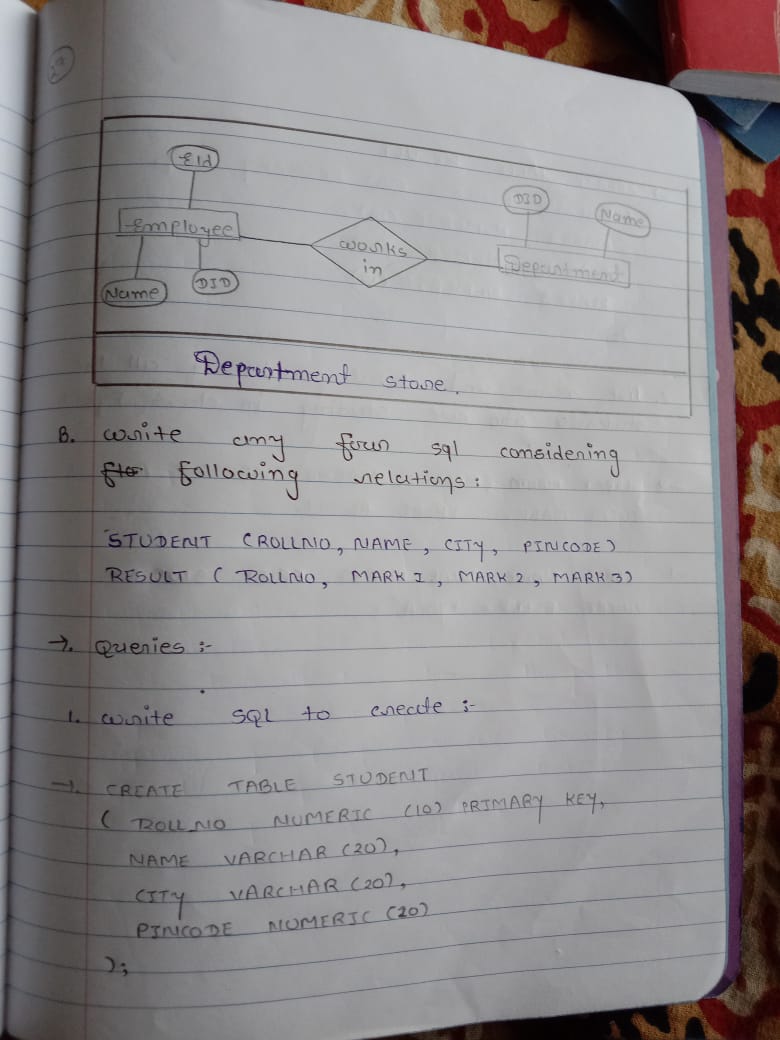 EId
DID
Name
Employee
works
in
Department
Name
DID
Department store.
B. write any four sql considering
following relations:
STUDENT (ROLLNO, NAME, CITY, PINCODE)
RESULT (ROLLNO, MARK1, MARK2, MARK3)
→. Queries :-
1. write SQL to create :-
→. CREATE TABLE STUDENT
( ROLLNO NUMERIC (10) PRIMARY KEY,
NAME VARCHAR (20),
CITY VARCHAR (20),
PINCODE NUMERIC (20)
);